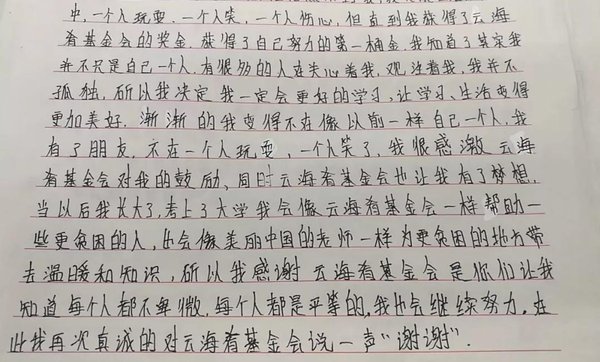 中，一个人玩耍、一个人笑，一个人伤心，但直到我获得了云海
肴基金会的奖金，获得了自己努力的第一桶金，我知道了其实我
并不只是自己一个人，有很多的人在关心着我，观注着我，我并不
孤独，所以我决定我一定会更好的学习，让学习、生活变得
更加美好，渐渐的我变得不在像以前一样自己一个人，我
有了朋友，不在一个人玩耍、一个人笑了，我很感激云海
肴基金会对我的鼓励、同时云海肴基金会也让我有了梦想，
当以后我长大了，考上了大学我会像云海肴基金会一样帮助一
些更贫困的人，也会像美丽中国的老师一样为更贫困的地方带
去温暖和知识，所以我感谢云海肴基金会是你们让我
知道每个人都不卑微，每个人都是平等的，我也会继续努力，在
此我再次真诚的对云海肴基金会说一声“谢谢”.